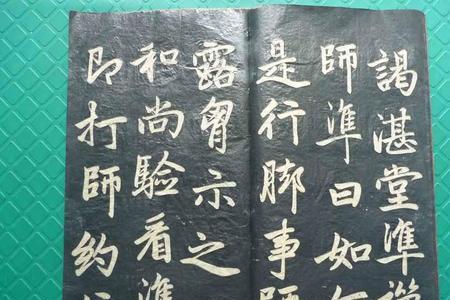 謁湛堂準
師準曰如何
是行脚事師
露胷示之
和尚驗看準
即打師約